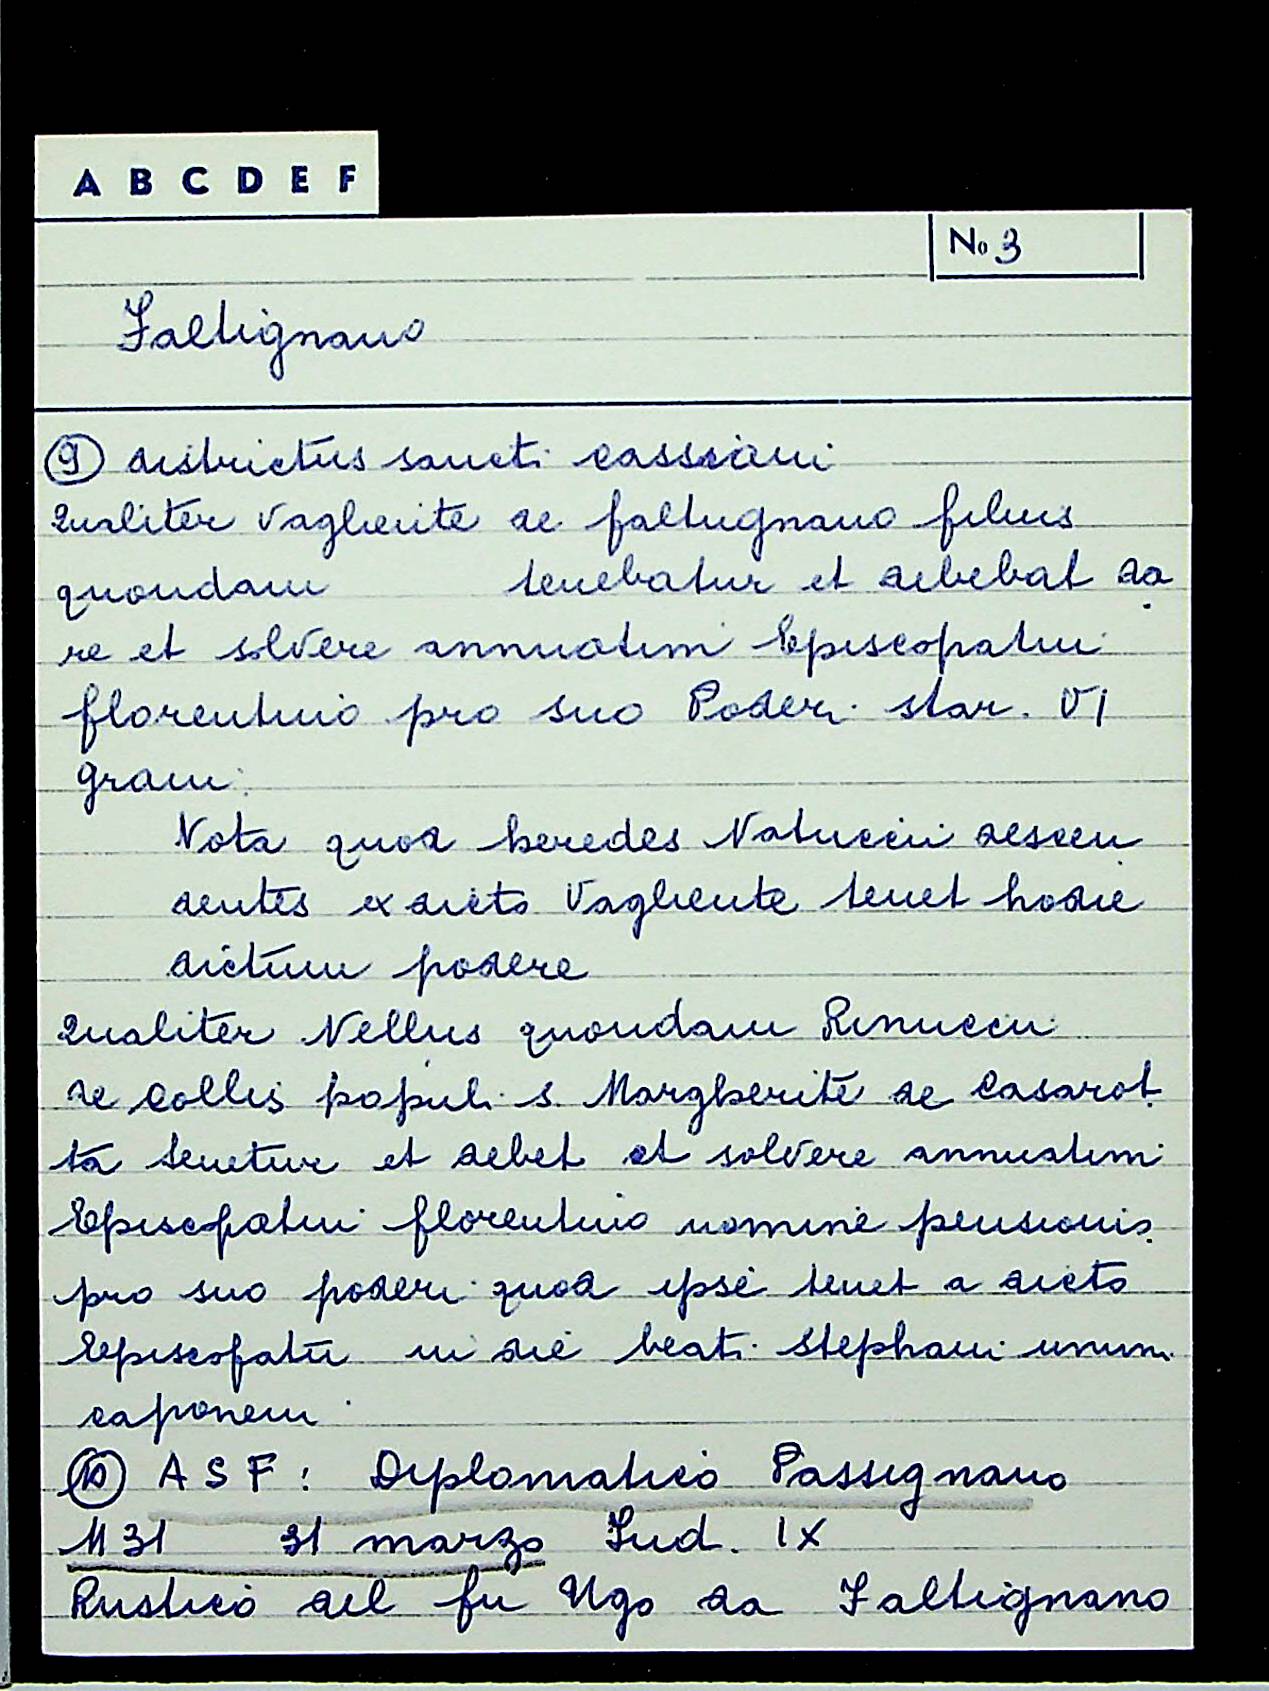 A B C D E F
No 3
Faltignano
9 districtus sancti cassiani
Qualiter Vagliente de faltugnano filius
quondam tenebatur et debebat da
re et solvere annuatim Episcopatui
florentino pro suo Poderi star. VI
grani
Nota quod heredes Natuccii descen
dentes ex dicto Vagliente tenet hodie
dictum podere
Qualiter Nellus quondam Rinuccii
de Colle populi s. Margherite de Casarot
ta tenetur et debet et solvere annuatim
Episcopatui florentino nomine pensionis
pro suo poderi quod ipse tenet a dicto
Episcopatu in die beati Stephani unum
caponem
10 A S F : Diplomatico Passignano
1131 31 marzo Ind. IX
Rustico del fu Ugo da Faltignano